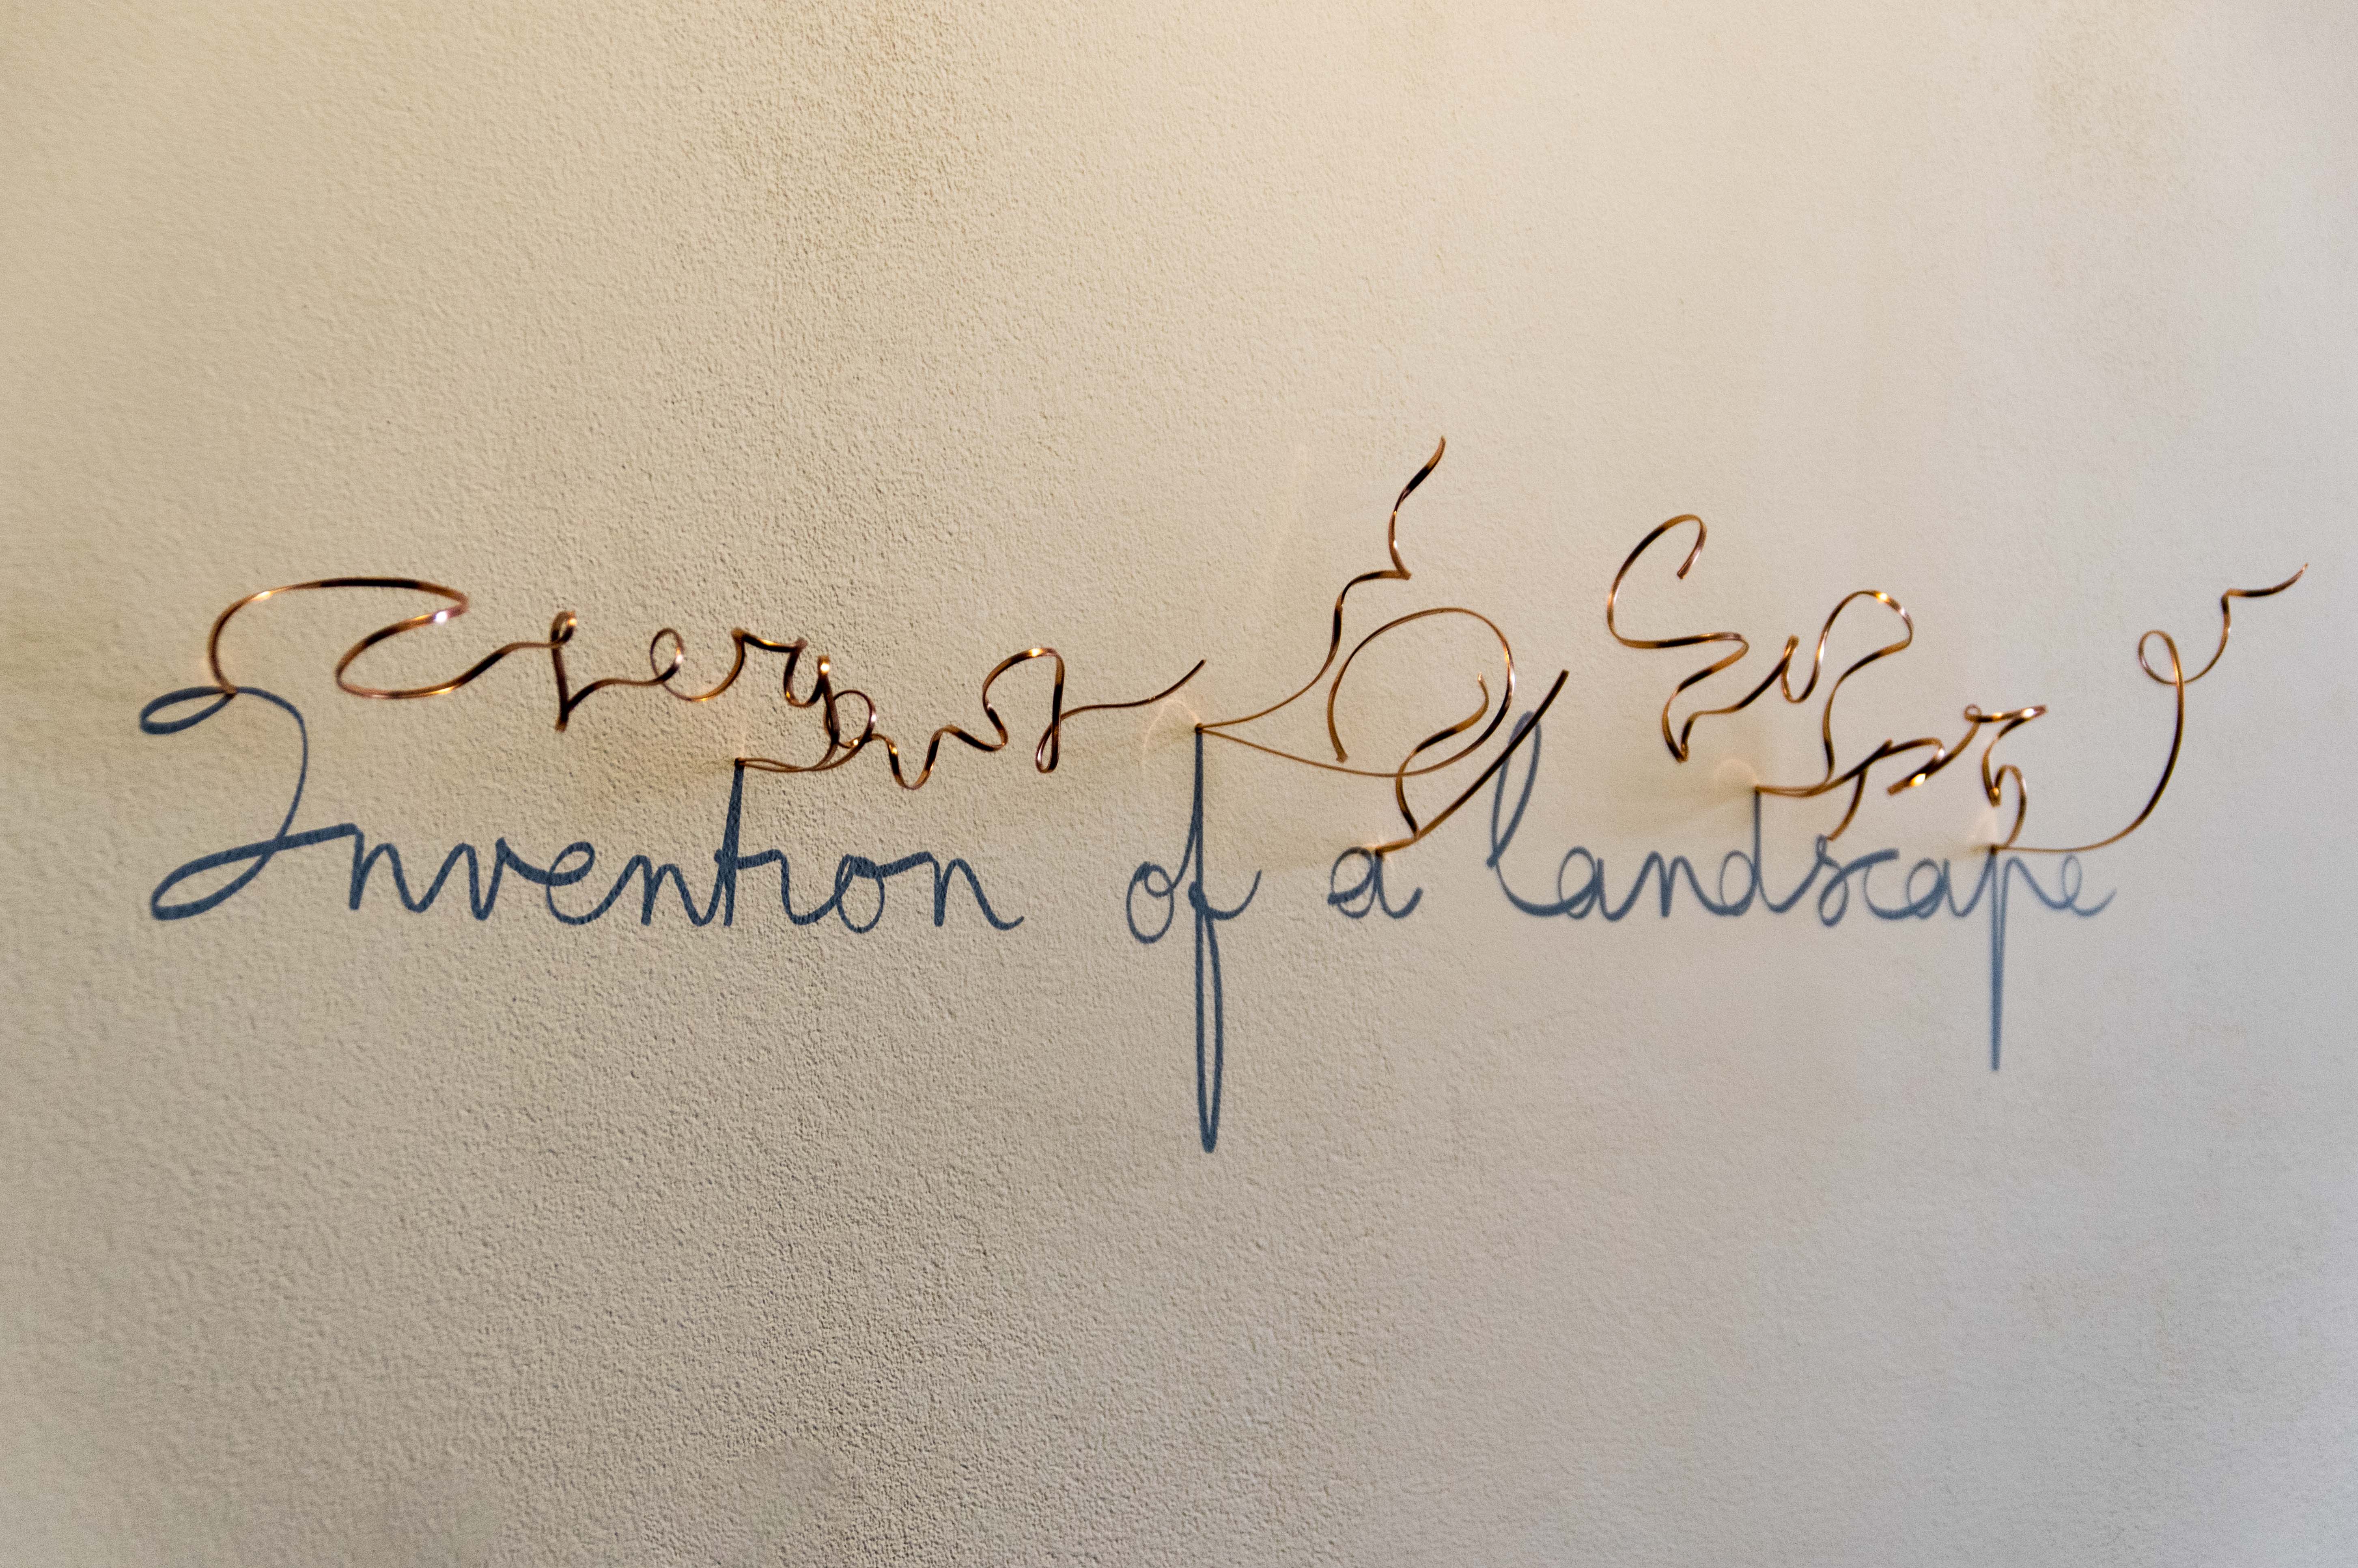 Invention of a landscape